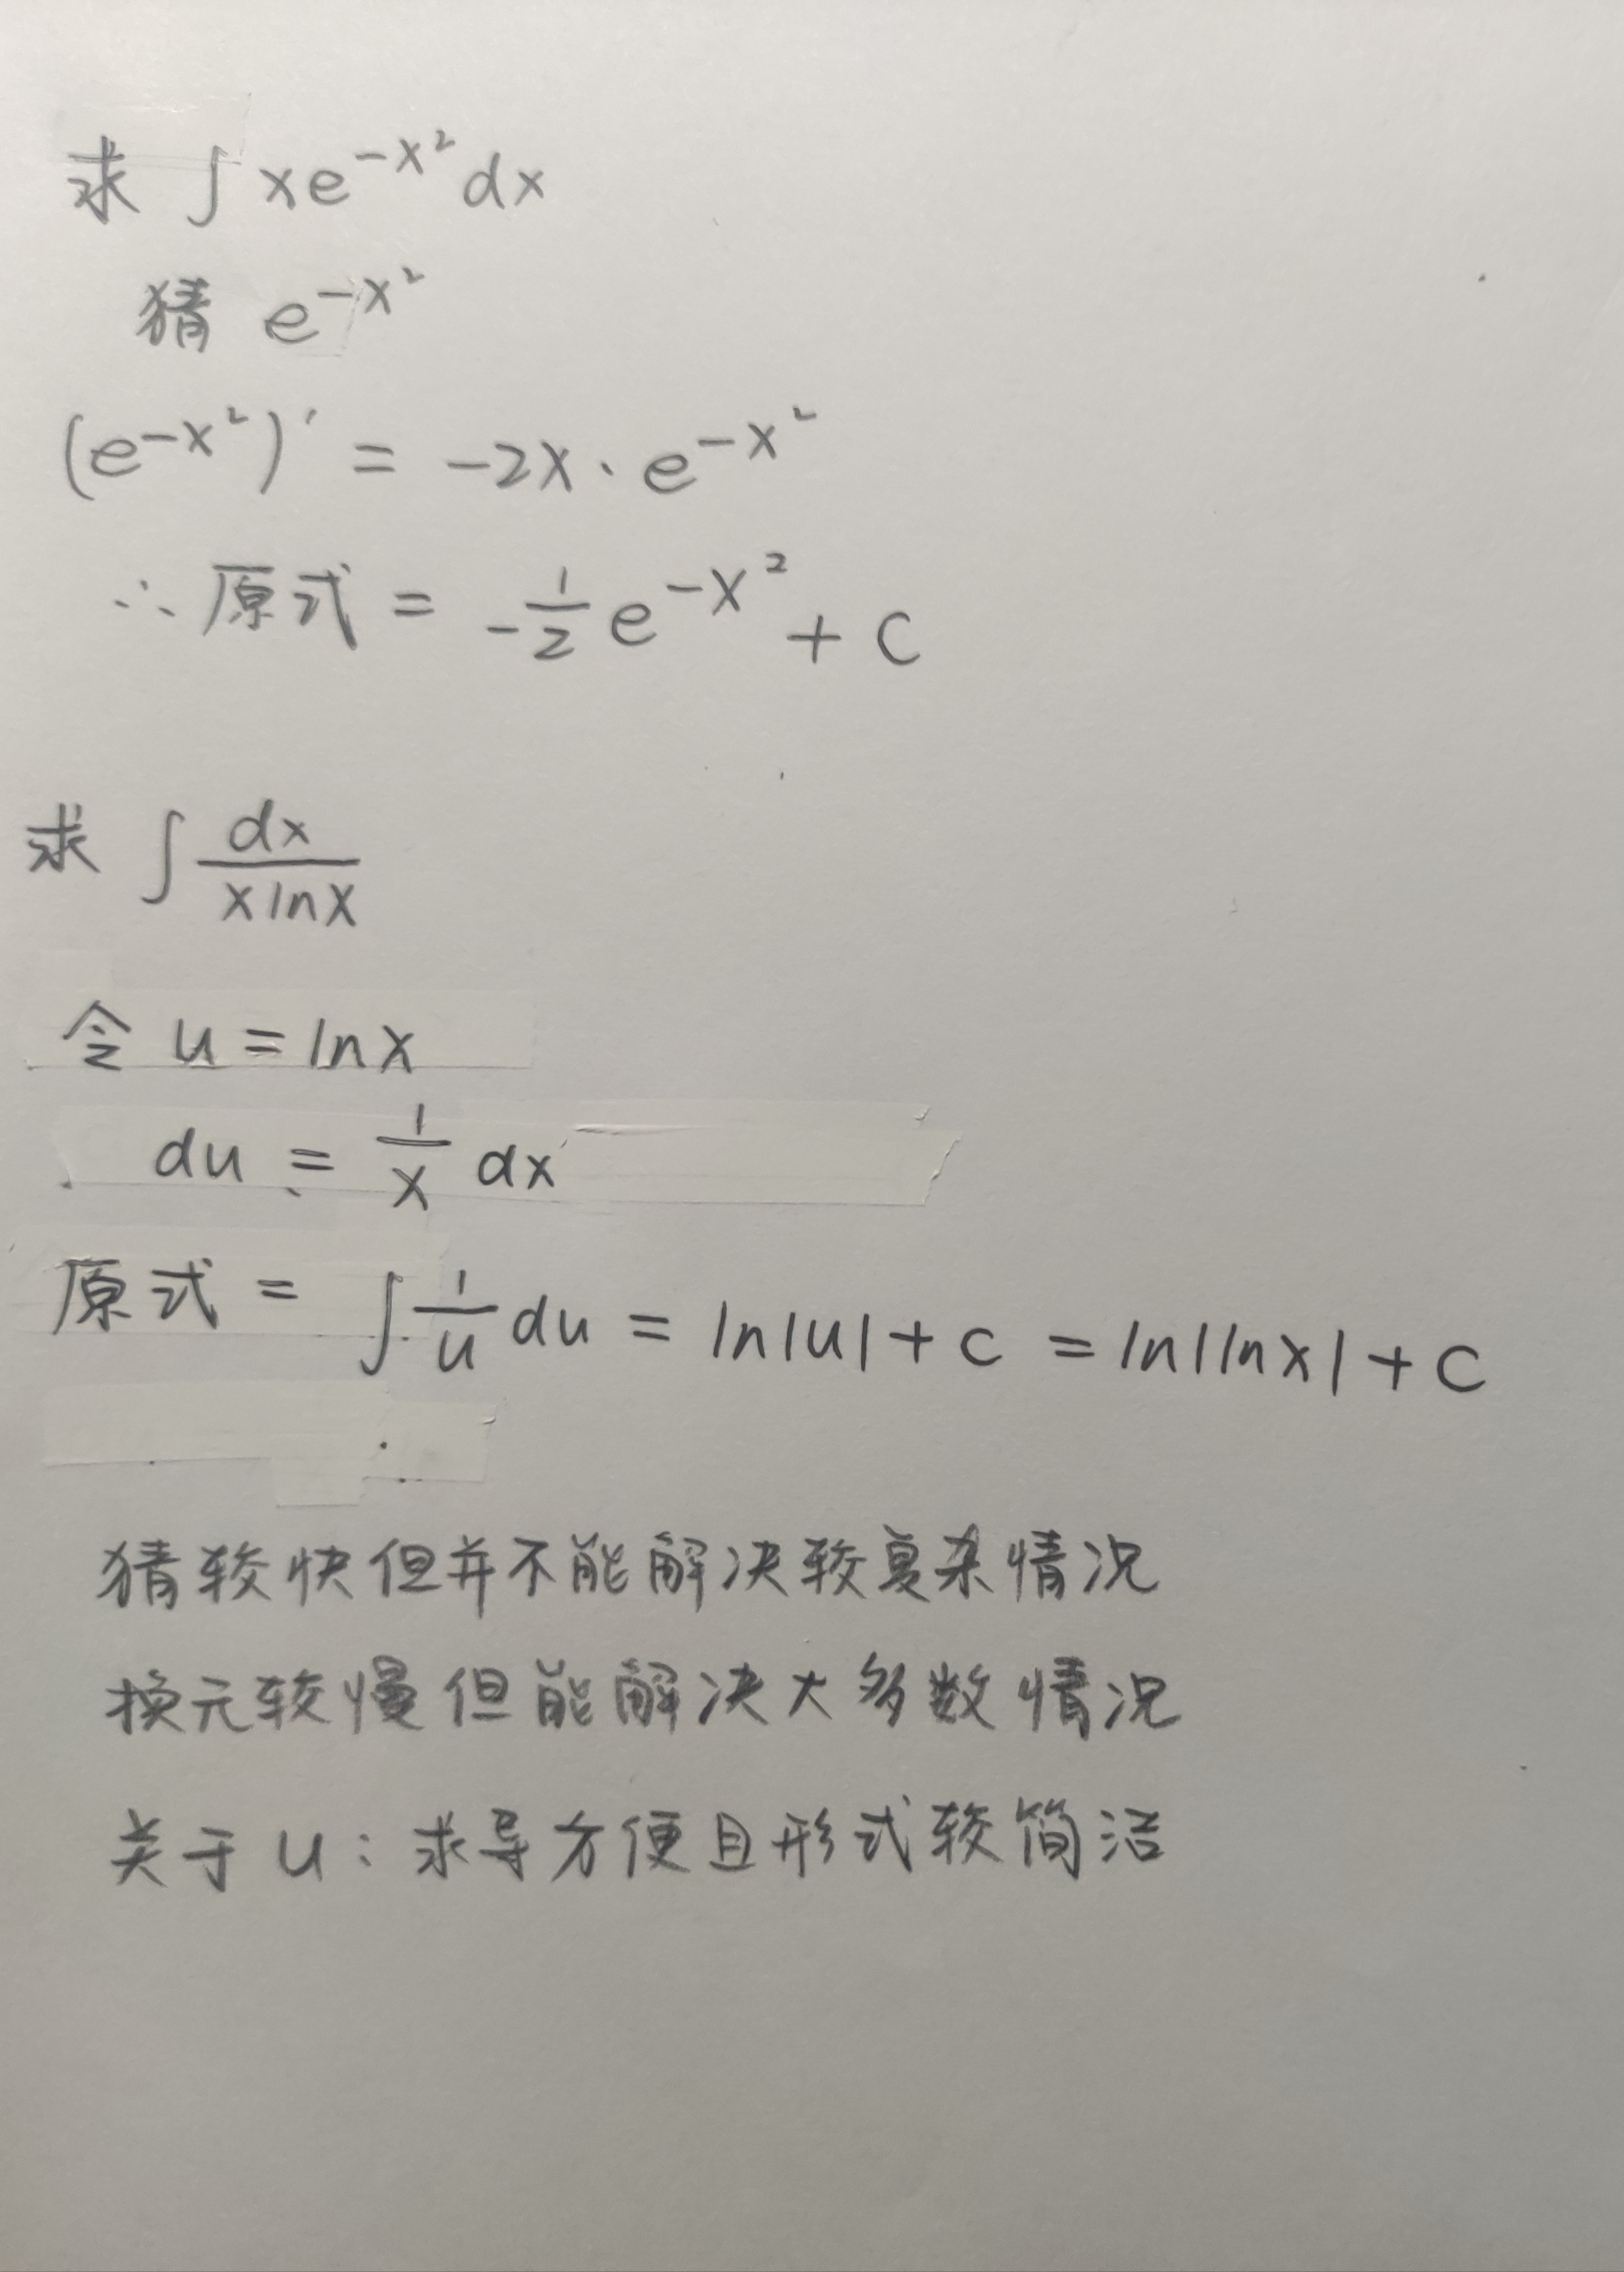 求 ∫ xe^{-x²} dx
猜 e^{-x²}
(e^{-x²})' = -2x · e^{-x²}
∴ 原式 = -1/2 e^{-x²} + C
求 ∫ dx/(x ln x)
令 u = ln x
du = 1/x dx
原式 = ∫ 1/u du = ln|u| + C = ln|ln x| + C
猜较快但并不能解决较复杂情况
换元较慢但能解决大多数情况
关于 u：求导方便且形式较简洁